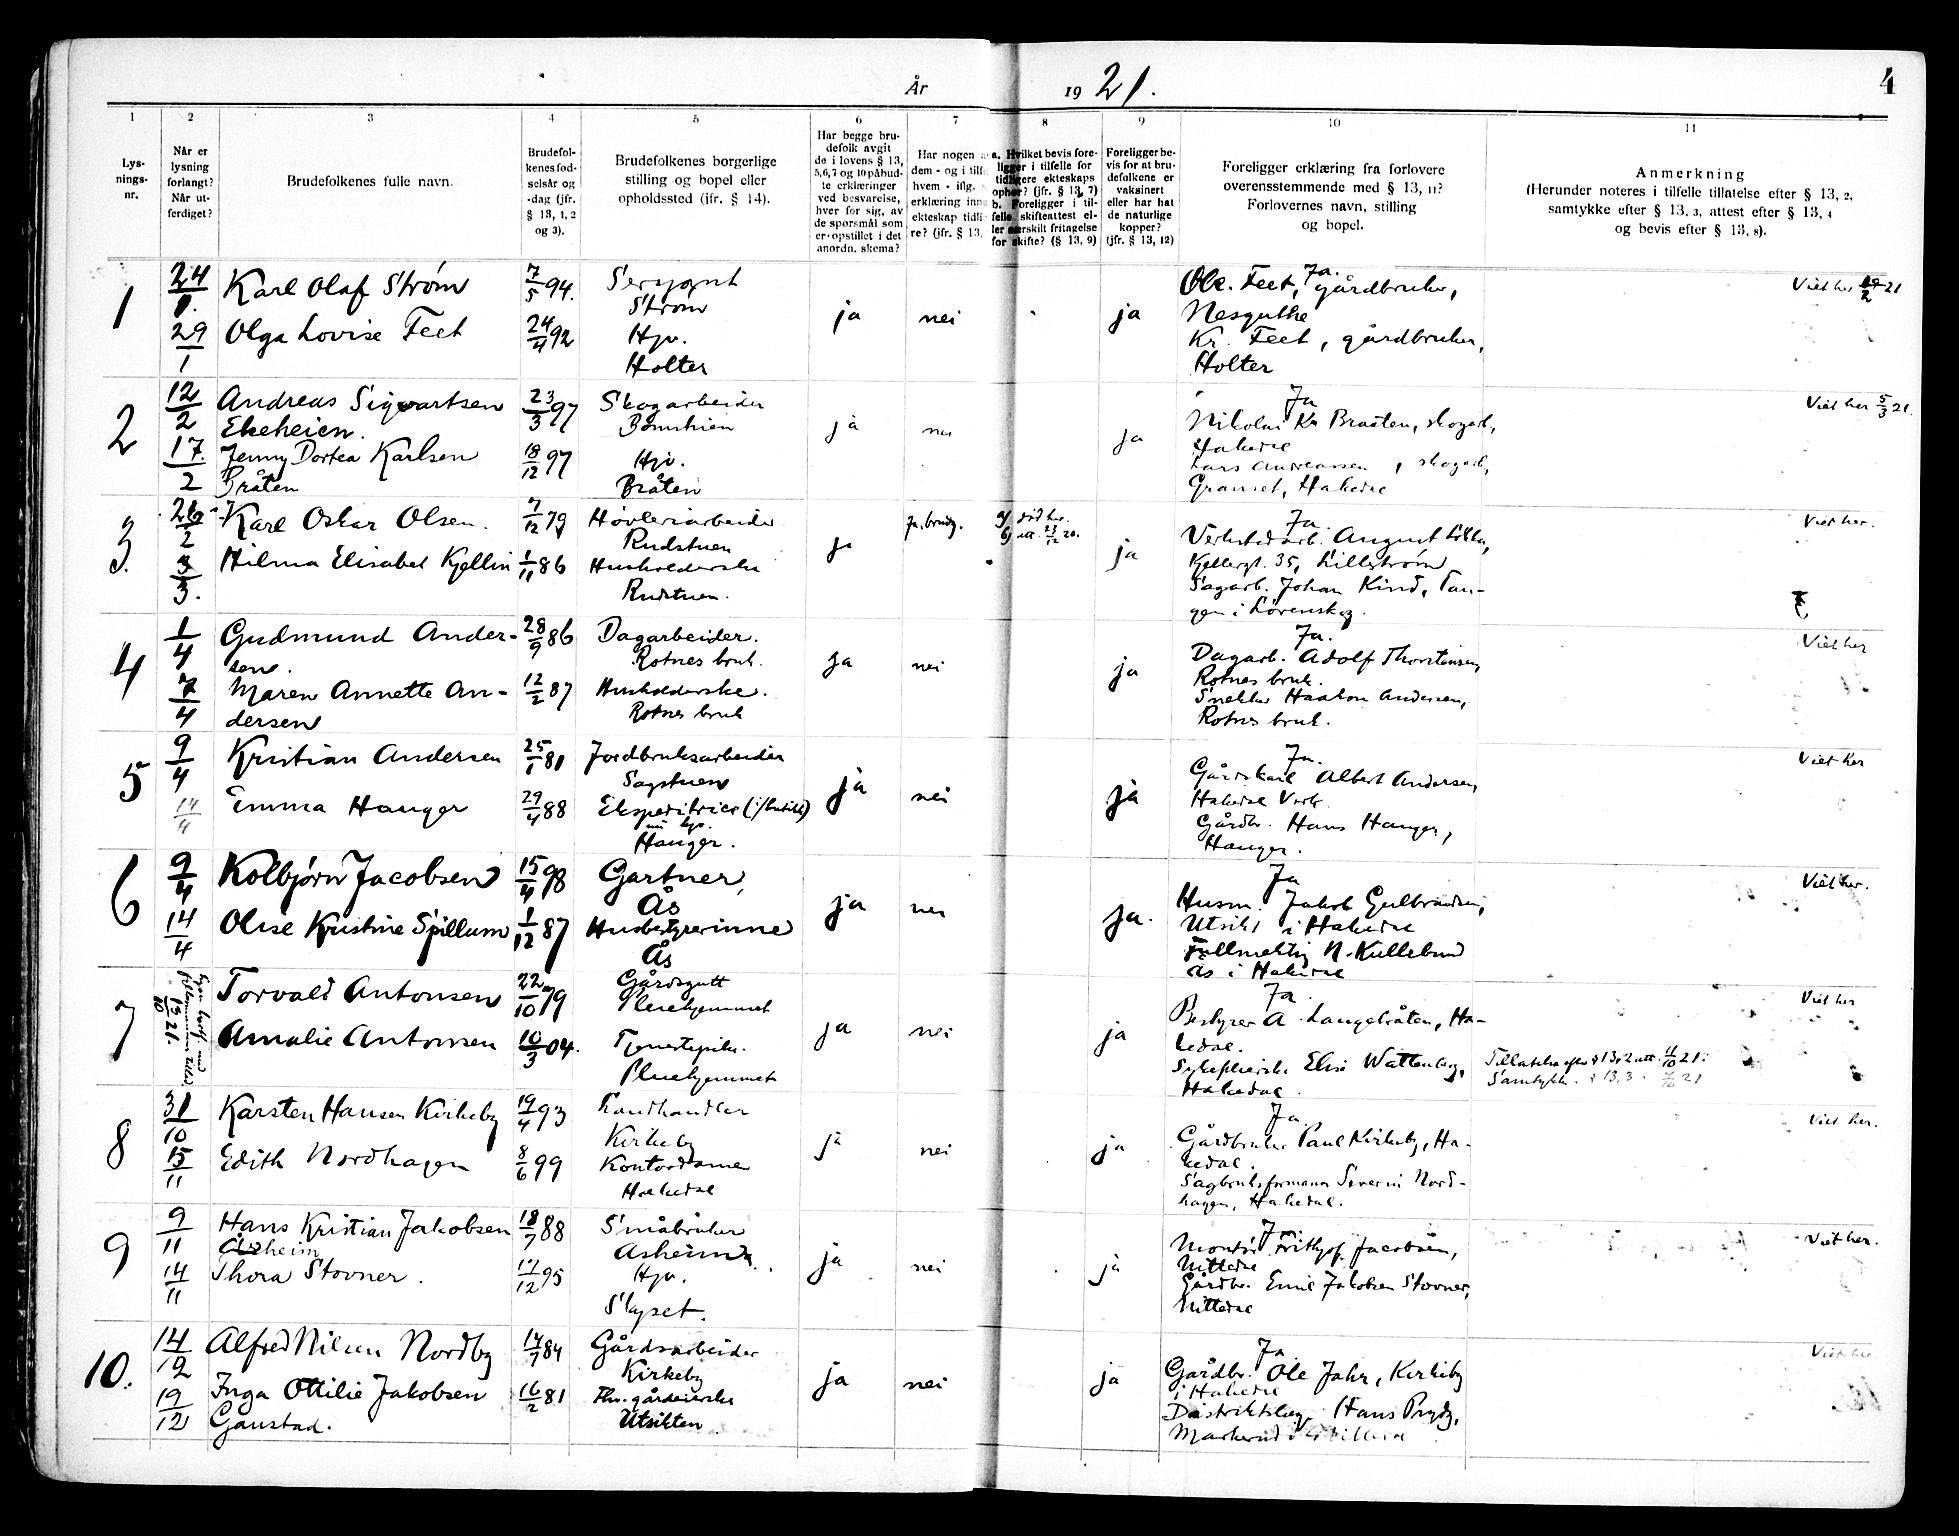 År 1921.
4
1 2 3 4 5 6 7 8 9 10 11
Lys-
nings-
nr.
Når er
lysning
forlangt?
Når ut-
ferdiget?
Brudefolkenes fulle navn.
Brudefol-
kenes fød-
selsår og
-dag (jfr.
§ 13, 1, 2
og 3).
Brudefolkenes borgerlige
stilling og bopel eller
opholdssted (jfr. § 14).
Har begge bru-
defolk avgit
de i lovens § 13,
5, 6, 7 og 10 påbud-
te erklæringer
ved besvarelse,
hver for sig, av
de spørsmål som
er opstillet i det
anordn. skema?
Har nogen a
dem - og i tilf
hvem - iflg.
erklæring inn
ekteskap tidli
re? (jfr. § 13,
a. Hvilket bevis fore-
ligger i tilfelle for
tidligere ekteskaps
ophør? (jfr. § 13, 7)
b. Foreligger i til-
felle skifteattest el-
ler særskilt fritagelse
for skifte? (§ 13, 9)
Foreligger be-
vis for at bru-
defolkene er
vaksinert
eller har hat
de naturlige
kopper?
(jfr. § 13, 12)
Foreligger erklæring fra forlovere
overensstemmende med § 13, 11?
Forlovernes navn, stilling
og bopel.
Anmerkning
(Herunder noteres i tilfelle tillatelse efter § 13, 2,
samtykke efter § 13, 3, attest efter § 13, 4
og bevis efter § 13, 8).
1
24/1.
29/1
Karl Olaf Strøm
Olga Lovise Feet
7/5 94.
24/4 92
Sersjant
Strøm
Hjv.
Holter
ja
nei
ja
Ja.
Ole Feet, gårdbruker,
Nesguthe
Kr. Feet, gårdbruker,
Holter
Viet her 19/2 21
2
12/2
17./2
Andreas Sigvartsen
Ekeheien.
Jenny Dortea Karlsen
Bråten
23/3 97
18/12 97
Skogarbeider
Hjv.
Bråten
ja
nei
ja
Ja
Nikolai Kr Braaten, skogarb,
Hakedal
Lars Andreassen, skogarb,
Granset, Hakedal
Viet her 5/3 21.
3.
26/2
3/3.
Karl Oskar Olsen.
Hilma Elisabet Kjellin
7/12 79
1/11 86
Høvleriarbeider
Rudstuen
Husholderske
Rudstuen.
ja
Ja. brudg.
a/ død her.
b/ att. 23/12 20.
ja
Ja.
Verkstedarb. August Lilla,
Kjellergt. 35, Lillestrøm
Sagarb. Johan Kind, Tan-
gen i Lørenskog.
Viet her.
4
1/4
7/4
Gudmund Ander-
sen.
Maren Annette An-
dersen
28/9 86
12/2 87
Dagarbeider.
Rotnes bruk.
Husholderske.
Rotnes bruk
ja
nei
ja
Ja.
Dagarb. Adolf Thorstensen,
Rotnes bruk.
Snekker Haakon Andersen,
Rotnes bruk.
Viet her
5
9/4
14/4
Kristian Andersen
Emma Hauger
25/1 81
29/4 88
Jordbruksarbeider
Sagstuen
Ekspeditrice (i butikk)
nu hjv.
Hauger.
ja
nei
ja
Ja.
Gårdskarl Albert Andersen,
Hakedal Verk.
Gårdbr. Hans Hauger,
Hauger.
Viet her
6
9/4
14/4
Kolbjørn Jacobsen
Olise Kristine Spillum
15/4 98
1/12 87
Gartner,
Ås
Husbestyrerinne
Ås
ja
nei
ja.
Ja
Husm. Jakob Gulbrandsen,
Utsikt i Hakedal
Fullmektig N. Kullebund
Ås i Hakedal
Viet her.
7
13/10 21.
Torvald Antonsen
Amalie Antonsen
22/10 79
10/3 04.
Gårdsgutt
Pleiehjemmet
Tjenestepike.
Pleiehjemmet
ja
nei
ja
Ja.
Bestyrer A. Langebråten, Ha-
kedal.
Sykepleierske Elise Wattenberg,
Hakedal.
Viet her
Tillatelse efter § 13,2 att. 11/10 21.
Samtykke. § 13,3. 7/10 21
8
31/10
15/11
Karsten Hansen Kirkeby
Edith Nordhagen
19/4 93
8/6 99
Landhandler
Kirkeby
Kontordame
Hakedal
ja
nei
ja
Ja.
Gårdbruker Paul Kirkeby, Ha-
kedal.
Sagbruksformann Severin Nord-
hagen, Hakedal.
Viet her.
9
9/11
14/11
Hans Kristian Jakobsen
Åsheim
Thora Stovner.
18/7 88
17/12 95
Småbruker
Åsheim.
Hjv.
Skyset.
ja
nei
ja
Ja.
Montør Frithjof Jacobsen,
Nittedal
Gårdbr. Emil Jakobsen Stovner,
Nittedal
Viet her.
10.
14/12
19/12
Alfred Nilsen Nordby
Inga Ottilie Jakobsen
Gaustad.
17/7 84
16/2 81
Gårdsarbeider
Kirkeby
Fhv. gårdeierske
Utsikten
ja
nei
ja
Ja
Gårdbr. Ole Jahr, Kirkeby
i Hakedal
Distriktslæge Hans Prydz,
Markerud i Nittedal
Viet her